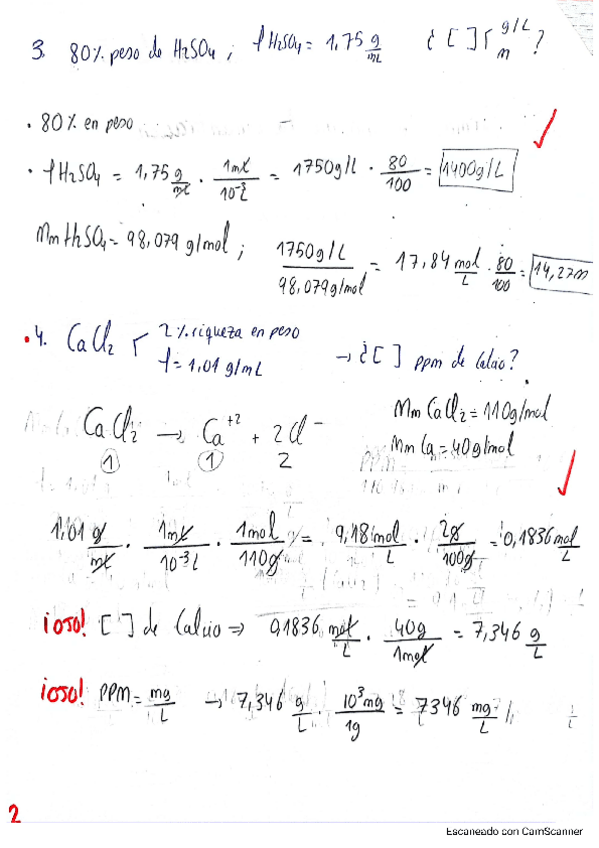 3. 80% peso de H2SO4 ; ρH2SO4 = 1,75 g/mL ¿[ ] g/L m ?
· 80% en peso
· ρH2SO4 = 1,75 g/mL · 1mL/10⁻³L = 1750g/L · 80/100 = 1400g/L
Mm H2SO4 = 98,079 g/mol ; 1750g/L / 98,079g/mol = 17,84 mol/L · 80/100 = 14,27m
·4. CaCl2 2% riqueza en peso
ρ = 1,01 g/mL → ¿[ ] ppm de Calcio?
Mm CaCl2 = 110g/mol
CaCl2 → Ca+2 + 2Cl−
Mm Ca = 40g/mol
1 1 2
1,01 g/mL · 1mL/10⁻³L · 1mol/110g = 9,18 mol/L · 2g/100g = 0,1836 mol/L
¡OJO! [ ] de Calcio ⇒ 0,1836 mol/L · 40g/1mol = 7,346 g/L
¡OJO! PPM = mg/L → 7,346 g/L · 10³mg/1g = 7346 mg/L
2
Escaneado con CamScanner